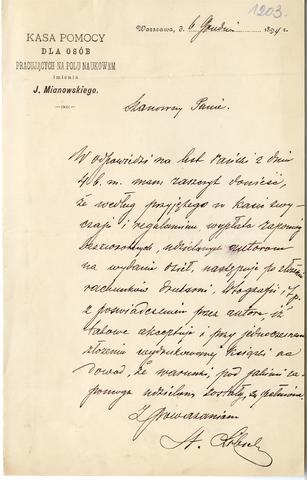 1203.
KASA POMOCY
DLA OSÓB
PRACUJĄCYCH NA POLU NAUKOWEM
imienia
J. Mianowskiego.
Warszawa, d. 6 Grudnia 1894 r.
Szanowny Panie.
W odpowiedzi na list Pański z dnia
4 b. m. mam zaszczyt donieść,
że według przyjętego w kasie zwy-
czaju i regulaminu wypłata zapomóg
bezzwrotnych, udzielonych autorom
na wydanie dzieł, następuje po złożeniu
rachunków drukarni, litografii i t. p.
z poświadczeniem przez autora, iż
takowe akceptuje i przy jednoczesnem
złożeniu wydrukowanej książki na
dowód, że warunki, pod jakiemi za-
pomoga udzieloną została, są spełnione.
Z poważaniem
St.